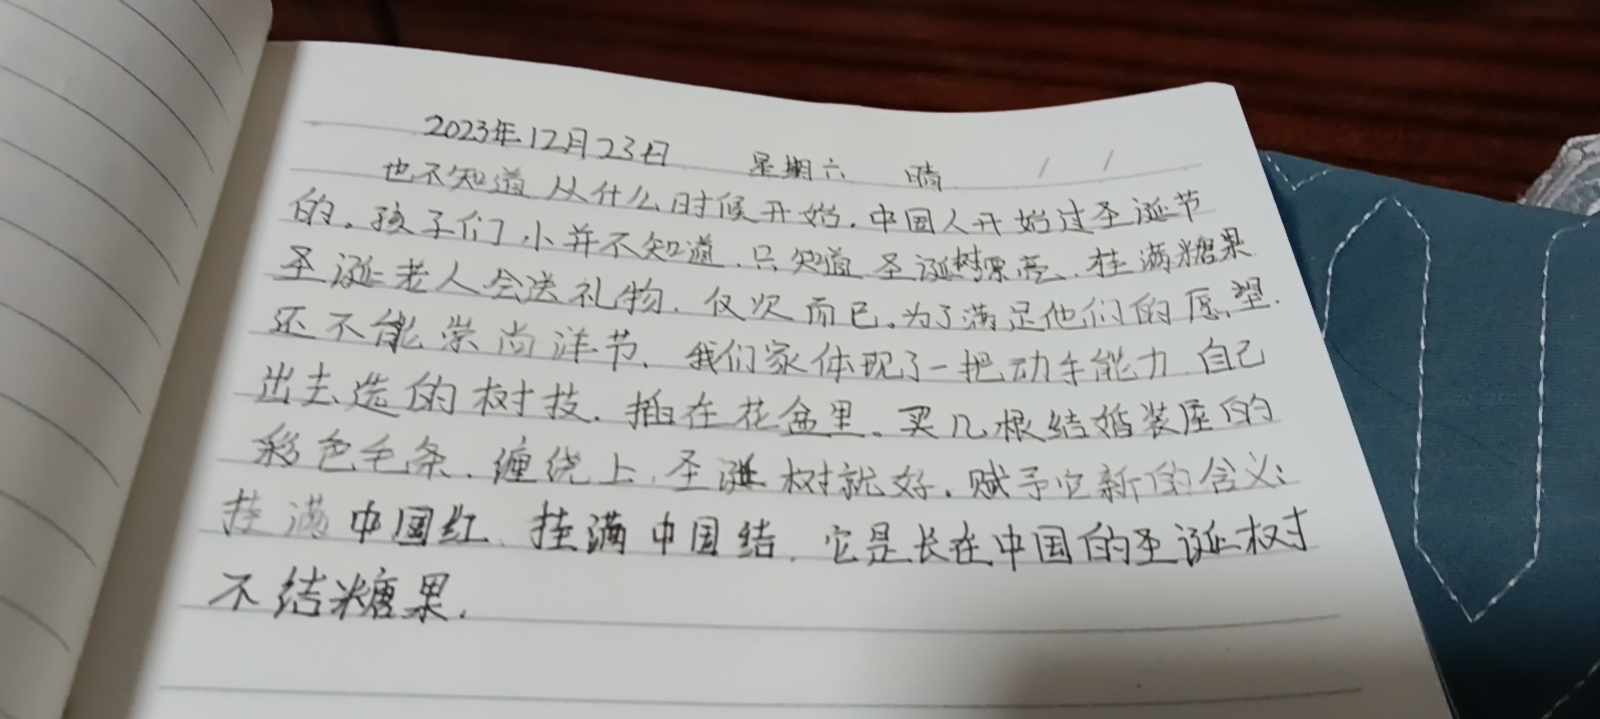 2023年12月23日 星期六 晴
也不知道从什么时候开始,中国人开始过圣诞节
的。孩子们小并不知道,只知道圣诞树漂亮、挂满糖果
圣诞老人会送礼物,仅次而已。为了满足他们的愿望.
还不能崇尚洋节、我们家体现了一把动手能力 自己
出去选的树技.插在花盆里、买几根结婚装座的
彩色毛条.缠绕上 圣诞树就好.赋予它新的含义:
挂满中国红、挂满中国结.它是长在中国的圣诞树
不结糖果.